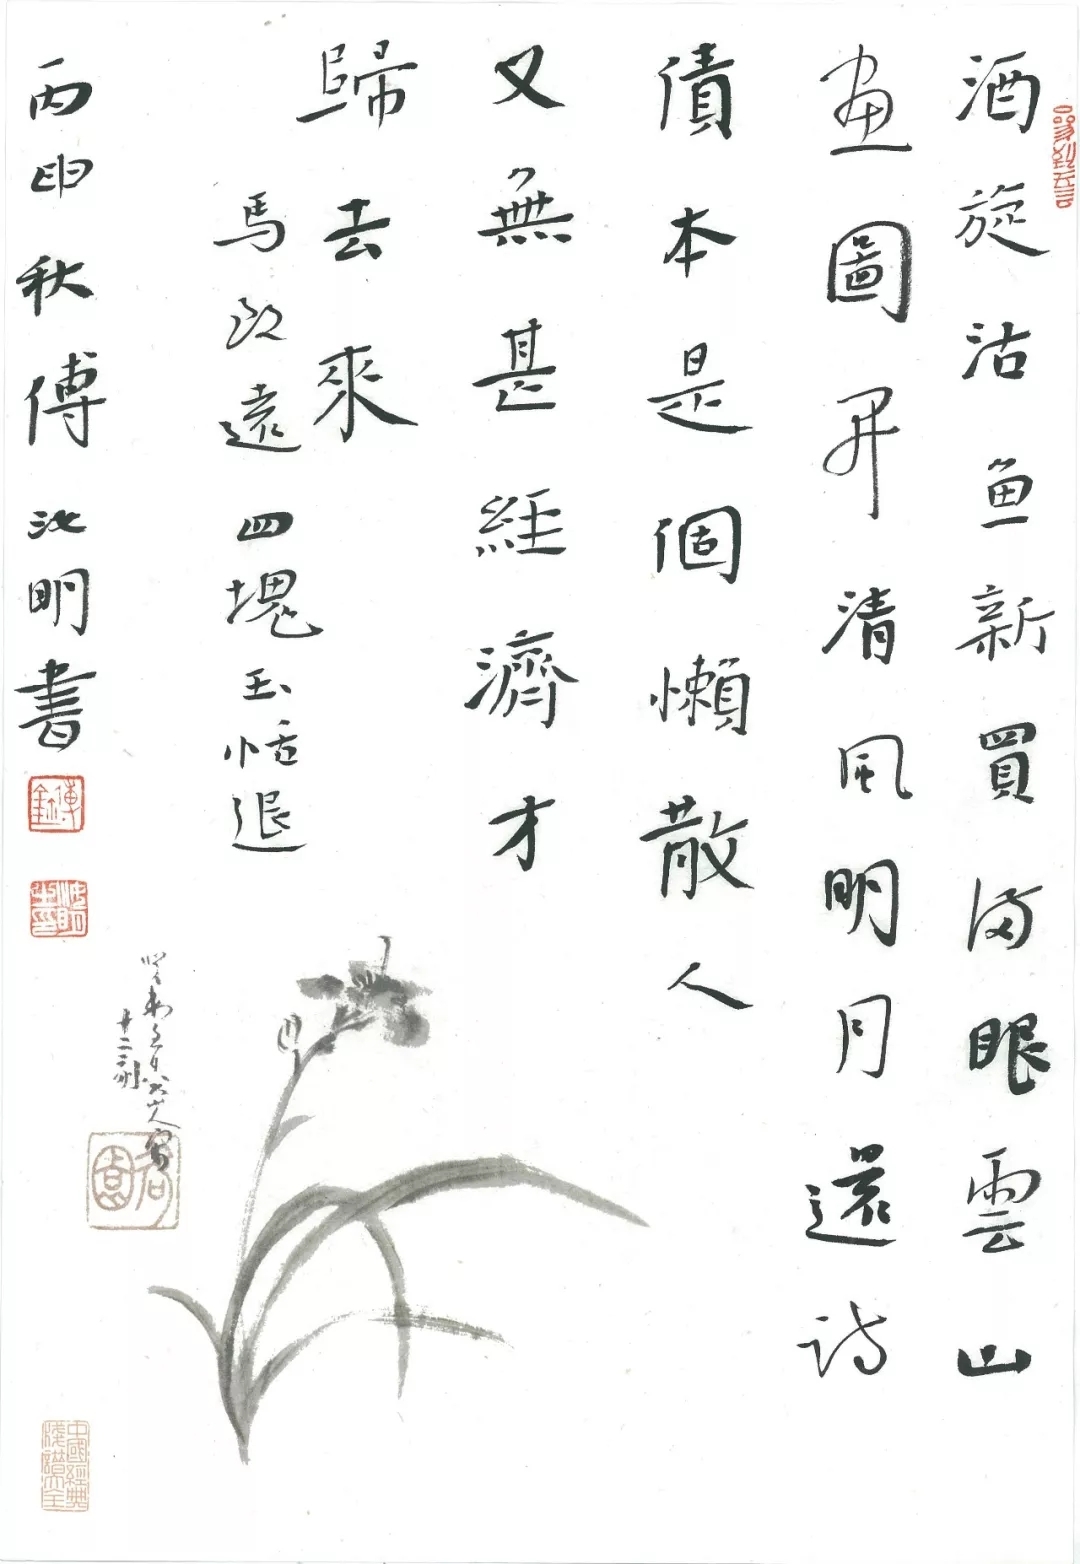 酒旋沽鱼新買满眼雲山
畫圖开清風明月還诗
債本是個懶散人
又無甚経濟才
歸去來
馬致遠四塊玉恬退
丙申秋傅明書
傅鉨
中國經典
譜大全